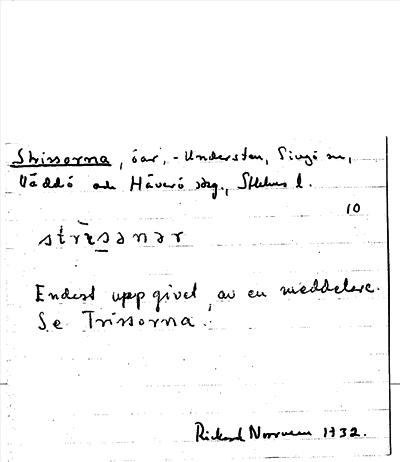 Strissorna, öar, - Understen, Singö sn,
Väddö och Häverö skg., Sthlms l.
10
strisanar
Endast uppgivet av en meddelare.
Se Trissorna.
Rickard Norrman 1932.